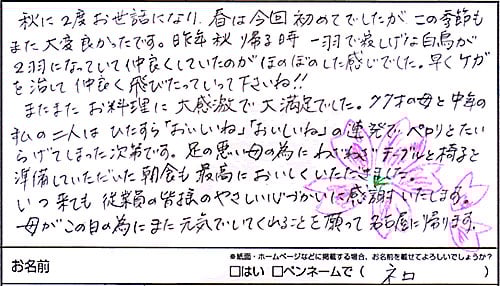 秋に2度お世話になり、春は今回初めてでしたが、この季節も
また大変良かったです。昨年秋帰る時一羽で寂しげな白鳥が
2羽になっていて仲良くしていたのがほのぼのした感じでした。早くケガ
を治して仲良く飛びたっていって下さいね!!
またまたお料理に大感激で大満足でした。97才の母と中年の
私の二人はひたすら「おいしいね」「おいしいね」の連発でペロリとたい
らげてしまった次第です。足の悪い母の為にわざわざテーブルと椅子を
準備していただいた朝食も最高においしくいただきました。
いつ来ても従業員の皆様のやさしい心づかいに感謝いたします。
母がこの日の為にまた元気でいてくれることを願って名古屋に帰ります。
お名前
※紙面・ホームページなどに掲載する場合、お名前を載せてよろしいでしょうか?
□はい □ペンネームで( ネロ )